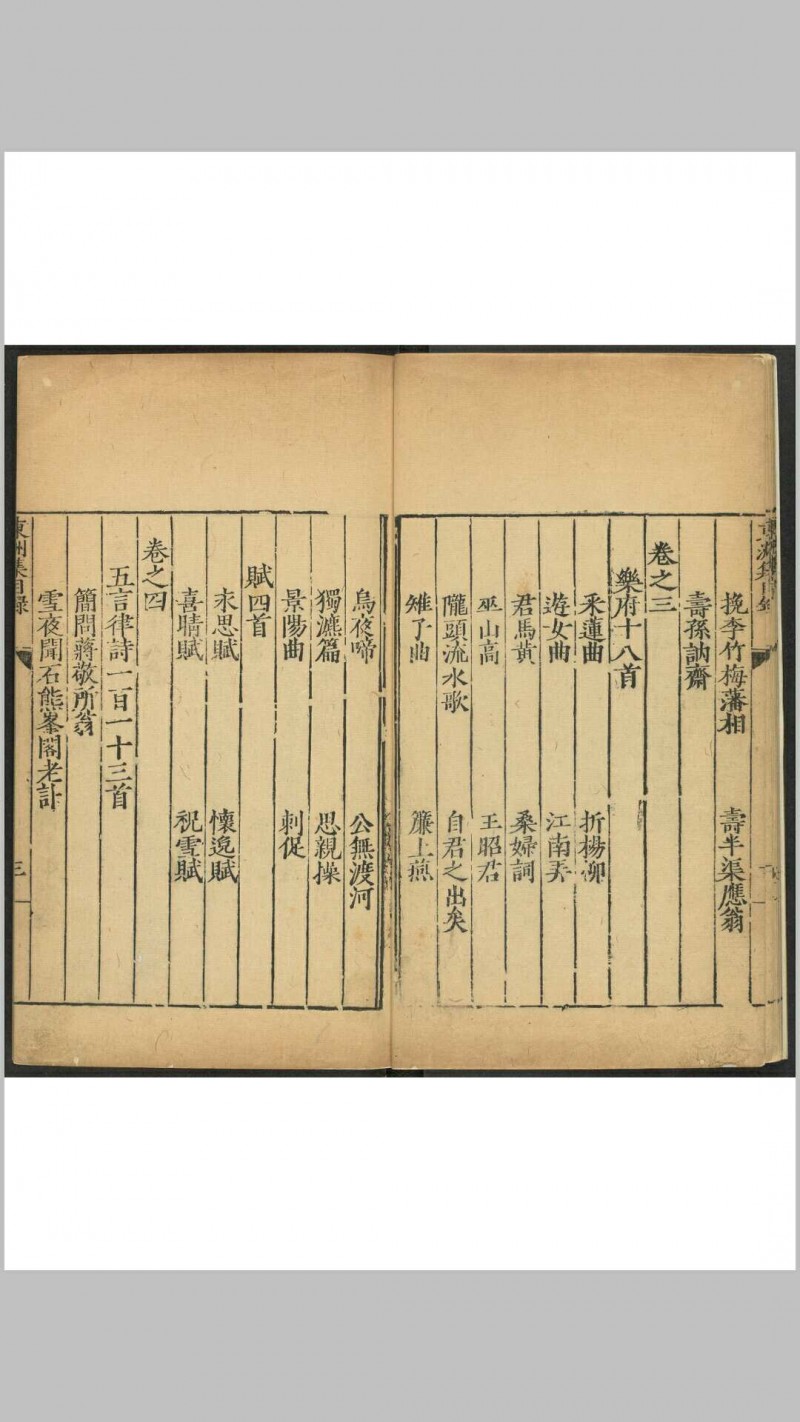 挽李竹梅藩相　壽半渠應翁
壽孫訥齋
卷之三
樂府十八首
采蓮曲　折楊柳
遊女曲　江南弄
君馬黃　桑婦詞
巫山高　王昭君
隴頭流水歌　自君之出矣
雉子曲　簾上燕
烏夜啼　公無渡河
獨漉篇　思親操
景陽曲　刺促
賦四首
永思賦　懷逸賦
喜晴賦　祝雪賦
卷之四
五言律詩一百一十三首
簡問蔣敬所翁
雪夜聞石熊峯閣老訃
東洲集目録　三